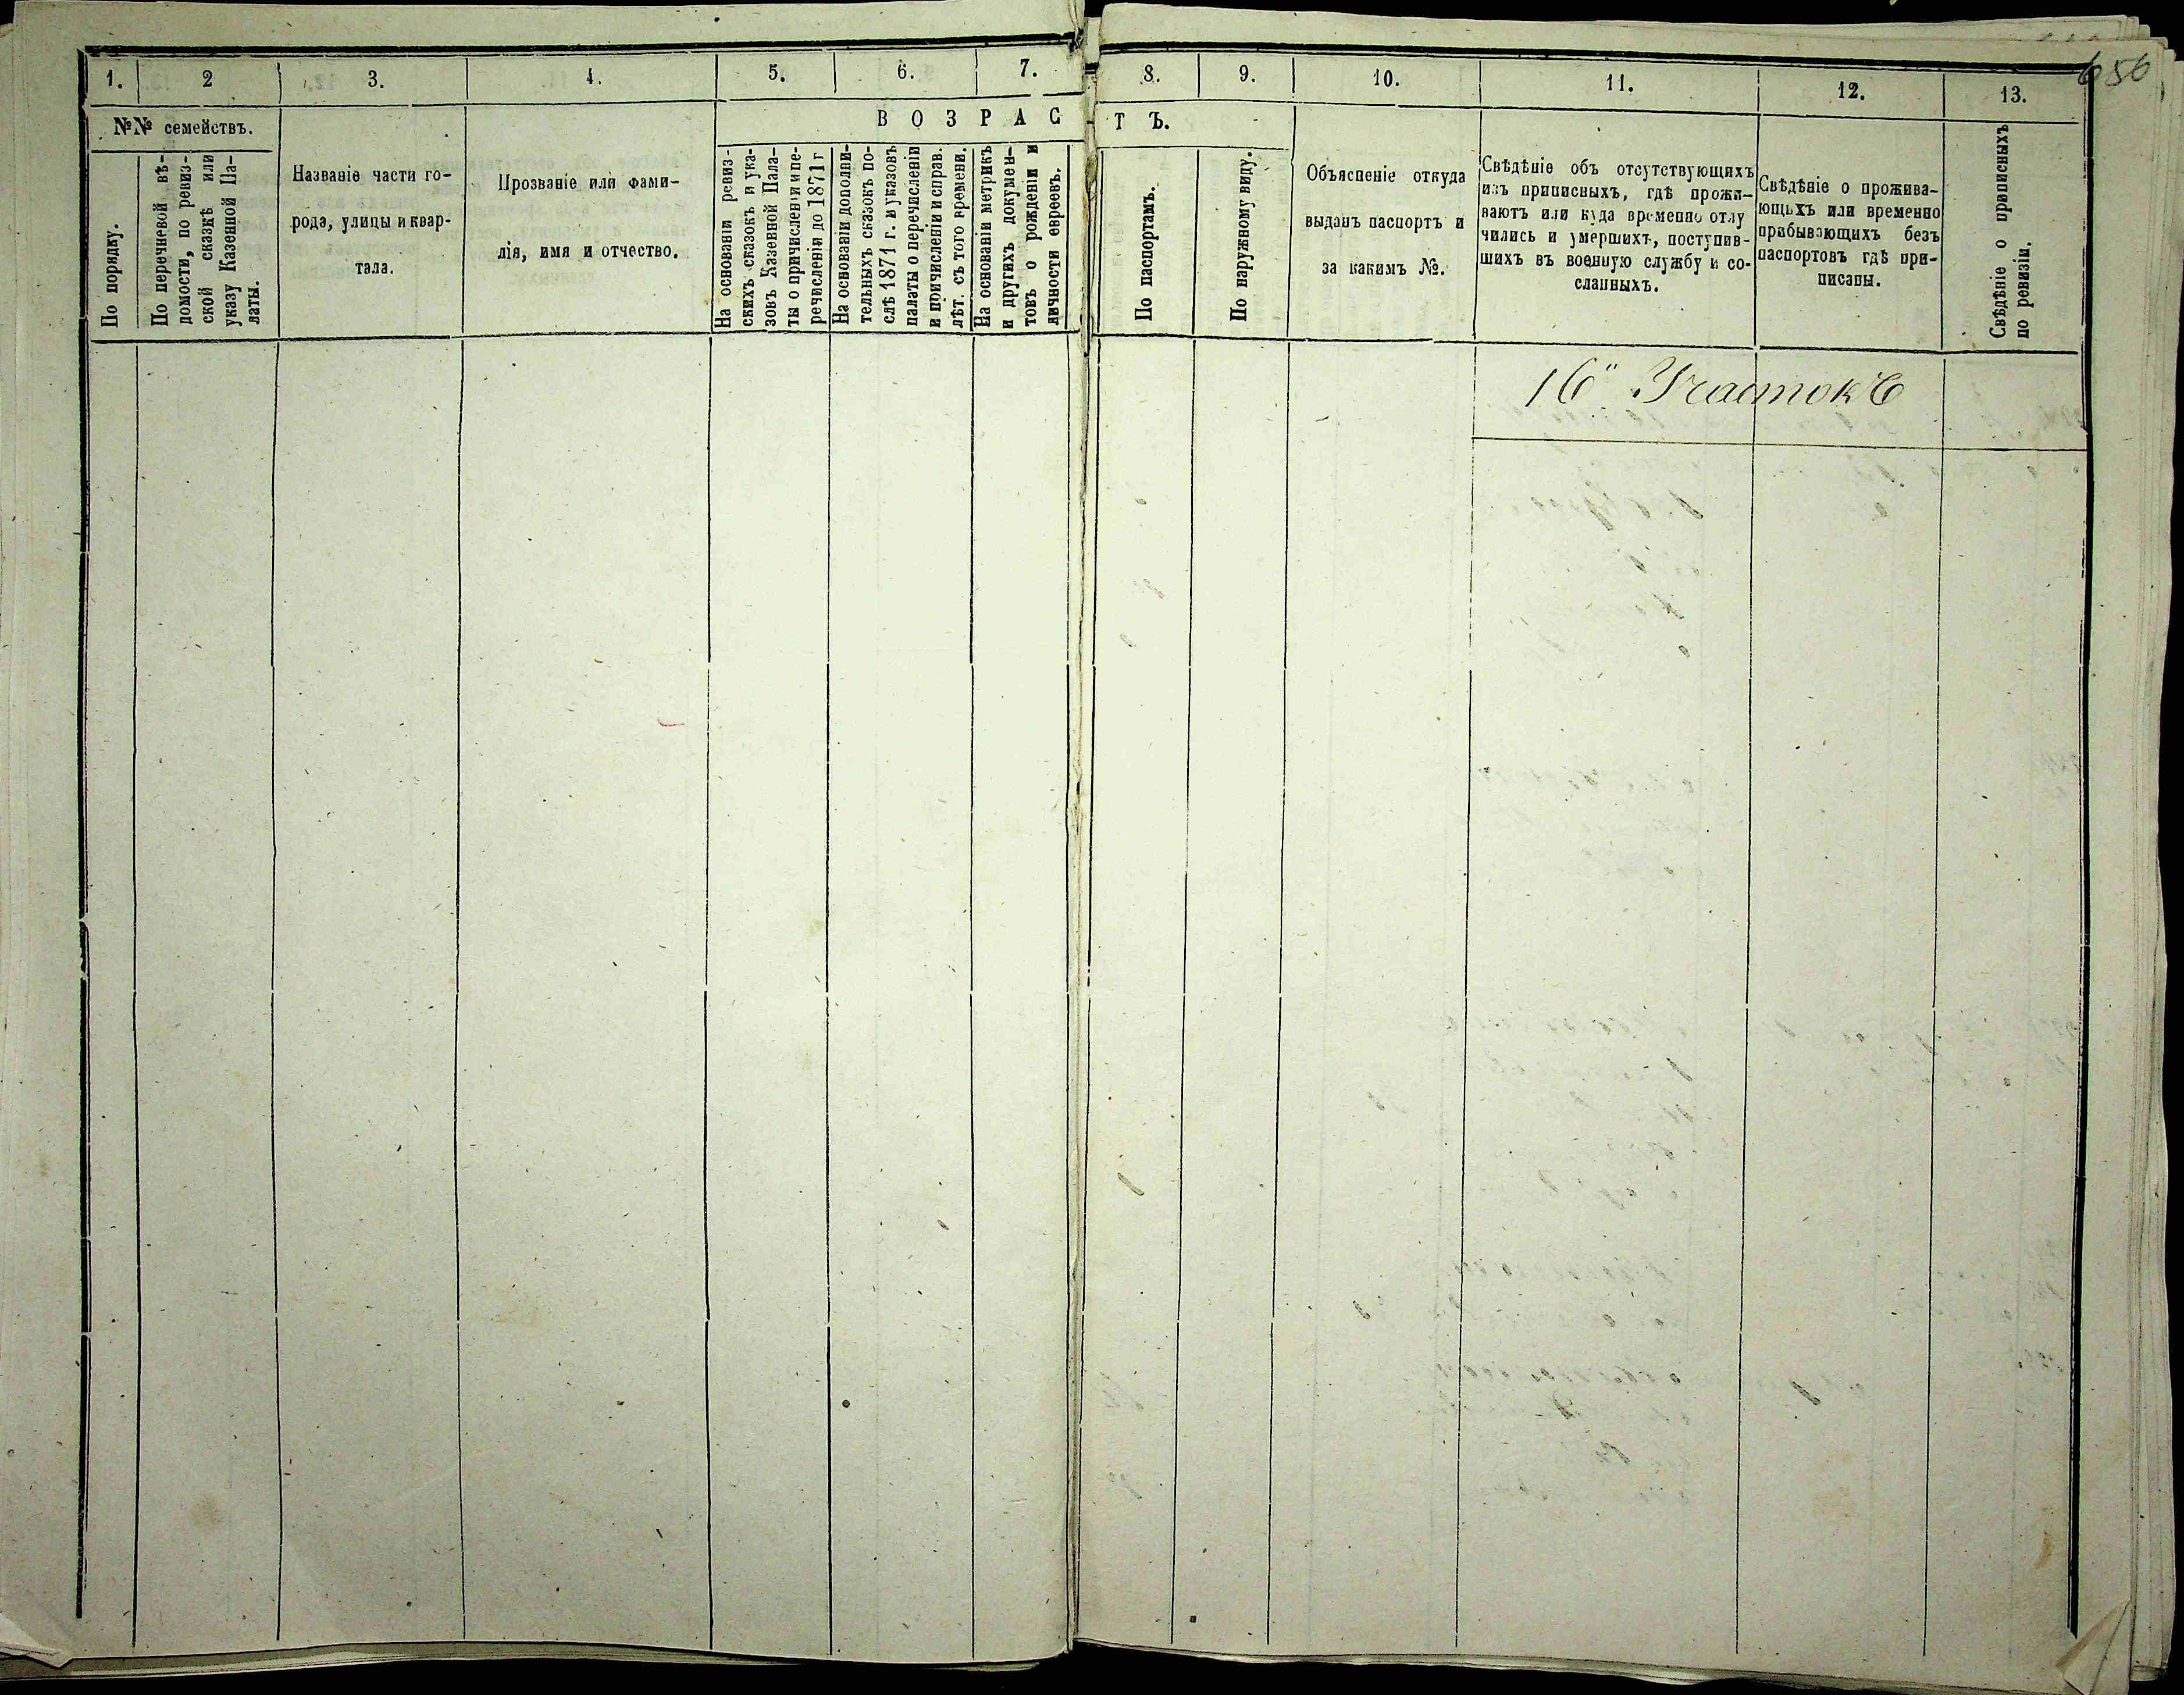 656
1.
2
3.
4.
5.
6.
7.
8.
9.
10.
11.
12.
13.
№№ семействъ.
По порядку.
По перечневой вѣ-
домости, по ревиз-
ской сказкѣ или
указу Казенной Па-
латы.
Названіе части го-
рода, улицы и квар-
тала.
Прозваніе или фами-
лія, имя и отчество.
ВОЗРАСТЪ.
На основаніи ревиз-
скихъ сказокъ и ука-
зовъ Казенной Пала-
ты о причисленіи и пе-
речисленіи до 1871 г
На основаніи дополни-
тельныхъ сказокъ по-
слѣ 1871 г. и указовъ
палаты о перечисленіи
и причисленіи и справ.
лѣт. съ того времени.
На основаніи метрикъ
и другихъ докумен-
товъ о рожденіи и
личности евреевъ.
По паспортамъ.
По наружному виду.
Объясненіе откуда
выданъ паспортъ и
за какимъ №.
Свѣдѣніе объ отсутствующихъ
изъ приписныхъ, гдѣ прожи-
ваютъ или куда временно отлу
чились и умершихъ, поступив-
шихъ въ военную службу и со-
сланныхъ.
Свѣдѣніе о прожива-
ющихъ или временно
прабывающихъ безъ
паспортовъ гдѣ при-
писаны.
Свѣдѣніе о приписныхъ
по ревизіи.
16" Участокъ